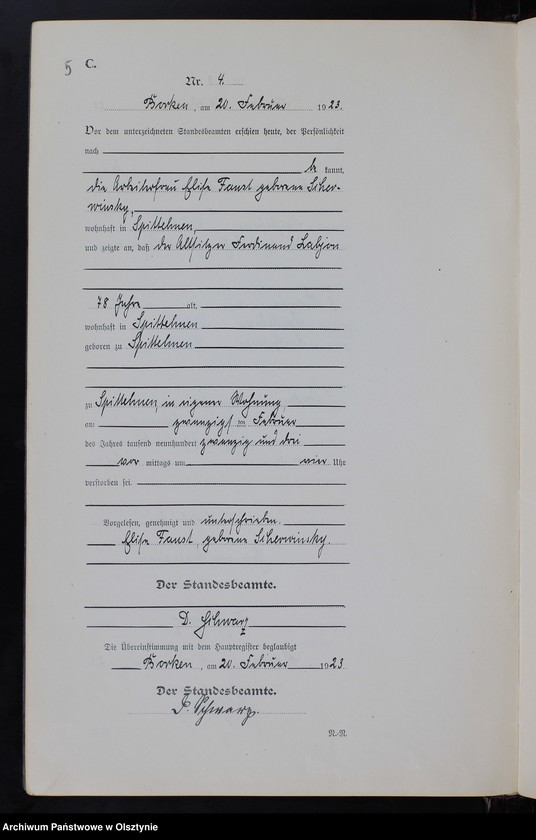 5 C.
Nr. 4.
Borken, am 20. Februar 1923.
Vor dem unterzeichneten Standesbeamten erschien heute, der Persönlichkeit
nach
be kannt,
die Arbeiterfrau Elise Faust geborene Scher-
winsky,
wohnhaft in Spittelnen,
und zeigte an, daß der Altsitzer Ferdinand
78 Jahre alt,
wohnhaft in Spittelnen
geboren zu Spittelnen
zu Spittelnen, in eigener Wohnung
am zwanzigsten Februar
des Jahres tausend neunhundert zwanzig und drei
vor mittags um vier Uhr
verstorben sei.
Vorgelesen, genehmigt und unterschrieben.
Elise Faust, geborene Scherwinsky.
Der Standesbeamte.
D. Schwarz
Die Übereinstimmung mit dem Hauptregister beglaubigt
Borken, am 20. Februar 1923
Der Standesbeamte.
D. Schwarz.
N-N.
Archiwum Państwowe w Olsztynie